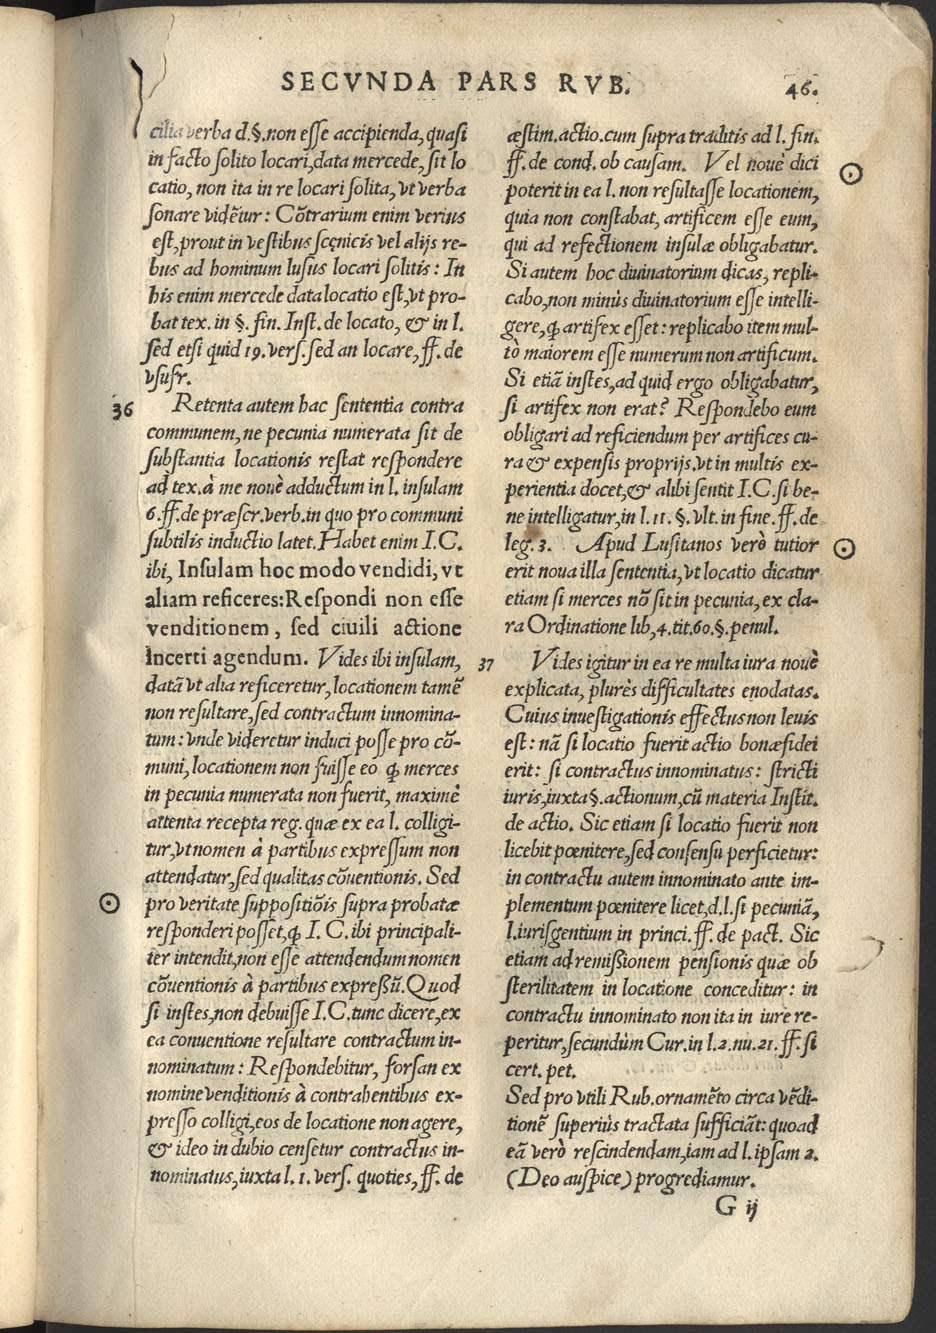 SECVNDA PARS RVB.
46.
cilia verba d.§.non esse accipienda, quasi
in facto solito locari, data mercede, sit lo
catio, non ita in re locari solita, vt verba
sonare vidẽtur: Cõtrarium enim verius
est, prout in vestibus scęnicis vel alijs re-
bus ad hominum lusus locari solitis: In
his enim mercede data locatio est, vt pro-
bat tex. in §. fin. Inst. de locato, & in l.
sed etsi quid 19. vers. sed an locare, ff. de
vsufr.
36 Retenta autem hac sententia contra
communem, ne pecunia numerata sit de
substantia locationis restat respondere
ad tex. à me nouè adductum in l. insulam
6. ff. de præscr. verb. in quo pro communi
subtilis inductio latet. Habet enim I.C.
ibi, Insulam hoc modo vendidi, vt
aliam reficeres: Respondi non esse
venditionem, sed ciuili actione
incerti agendum. Vides ibi insulam,
datã vt alia reficeretur, locationem tamẽ
non resultare, sed contractum innomina-
tum: vnde videretur induci posse pro cõ-
muni, locationem non fuisse eo ꝙ merces
in pecunia numerata non fuerit, maximè
attenta recepta reg. quæ ex ea l. colligi-
tur, vt nomen à partibus expressum non
attendatur, sed qualitas cõuentionis. Sed
pro veritate suppositiõis supra probatæ
responderi posset, ꝙ I.C. ibi principali-
ter intendit, non esse attendendum nomen
cõuentionis à partibus expreßũ. Quod
si instes, non debuisse I.C. tunc dicere, ex
ea conuentione resultare contractum in-
nominatum: Respondebitur, forsan ex
nomine venditionis à contrahentibus ex-
presso colligi, eos de locatione non agere,
& ideo in dubio censetur contractus in-
nominatus, iuxta l. 1. vers. quoties, ff. de
æstim. actio. cum supra traditis ad l. fin.
ff. de cond. ob causam. Vel nouè dici
poterit in ea l. non resultasse locationem,
quia non constabat, artificem esse eum,
qui ad refectionem insulæ obligabatur.
Si autem hoc diuinatorium dicas, repli-
cabo, non minùs diuinatorium esse intelli-
gere, ꝙ artifex esset: replicabo item mul-
tò maiorem esse numerum non artificum.
Si etiã instes, ad quid ergo obligabatur,
si artifex non erat? Respondebo eum
obligari ad reficiendum per artifices cu-
ra & expensis proprijs, vt in multis ex-
perientia docet, & alibi sentit I.C. si be-
ne intelligatur, in l. 11. §. vlt. in fine. ff. de
leg. 3. Apud Lusitanos verò tutior
erit noua illa sententia, vt locatio dicatur
etiam si merces nõ sit in pecunia, ex cla-
ra Ordinatione lib, 4. tit. 60. §. penul.
37 Vides igitur in ea re multa iura nouè
explicata, plurès difficultates enodatas.
Cuius inuestigationis effectus non leuis
est: nã si locatio fuerit actio bonæ fidei
erit: si contractus innominatus: stricti
iuris, iuxta §. actionum, cũ materia Instit.
de actio. Sic etiam si locatio fuerit non
licebit pœnitere, sed consensu perficietur:
in contractu autem innominato ante im-
plementum pœnitere licet, d.l. si pecuniã,
l. iurisgentium in princi. ff. de pact. Sic
etiam ad remißionem pensionis quæ ob
sterilitatem in locatione conceditur: in
contractu innominato non ita in iure re-
peritur, secundùm Cur. in l. 2. nu. 21. ff. si
cert. pet.
Sed pro vtili Rub. ornamẽto circa vẽdi-
tionẽ superiùs tractata sufficiãt: quoad
eã verò rescindendam, iam ad l. ipsam 2.
(Deo auspice) progrediamur.
G ij